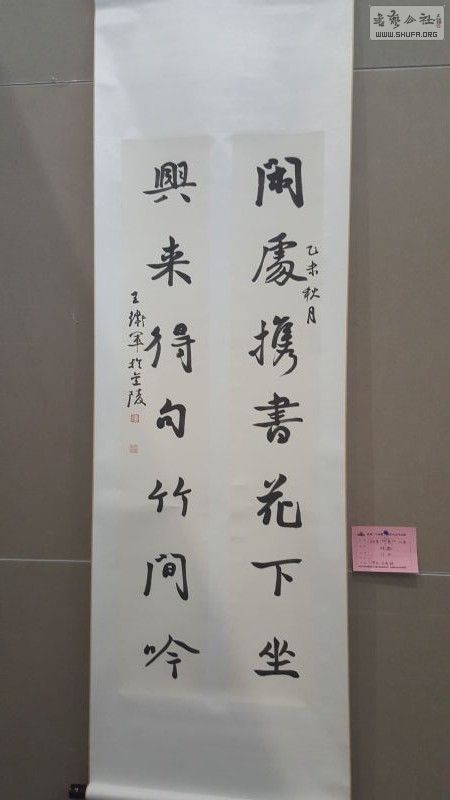 閑處携書花下坐
乙未秋月
興来得句竹間吟
王衛軍於金陵
書藝公社
WWW.SHUFA.ORG